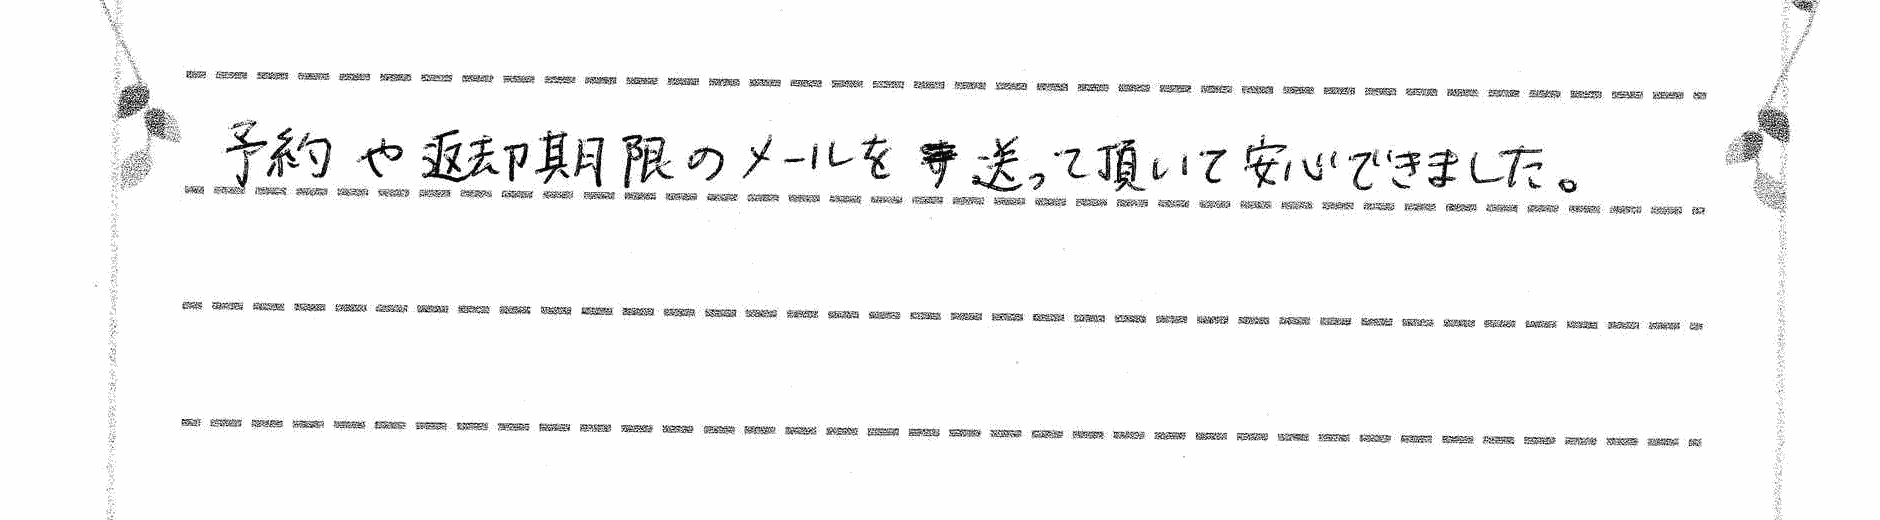 予約や返却期限のメールを送って頂いて安心できました。